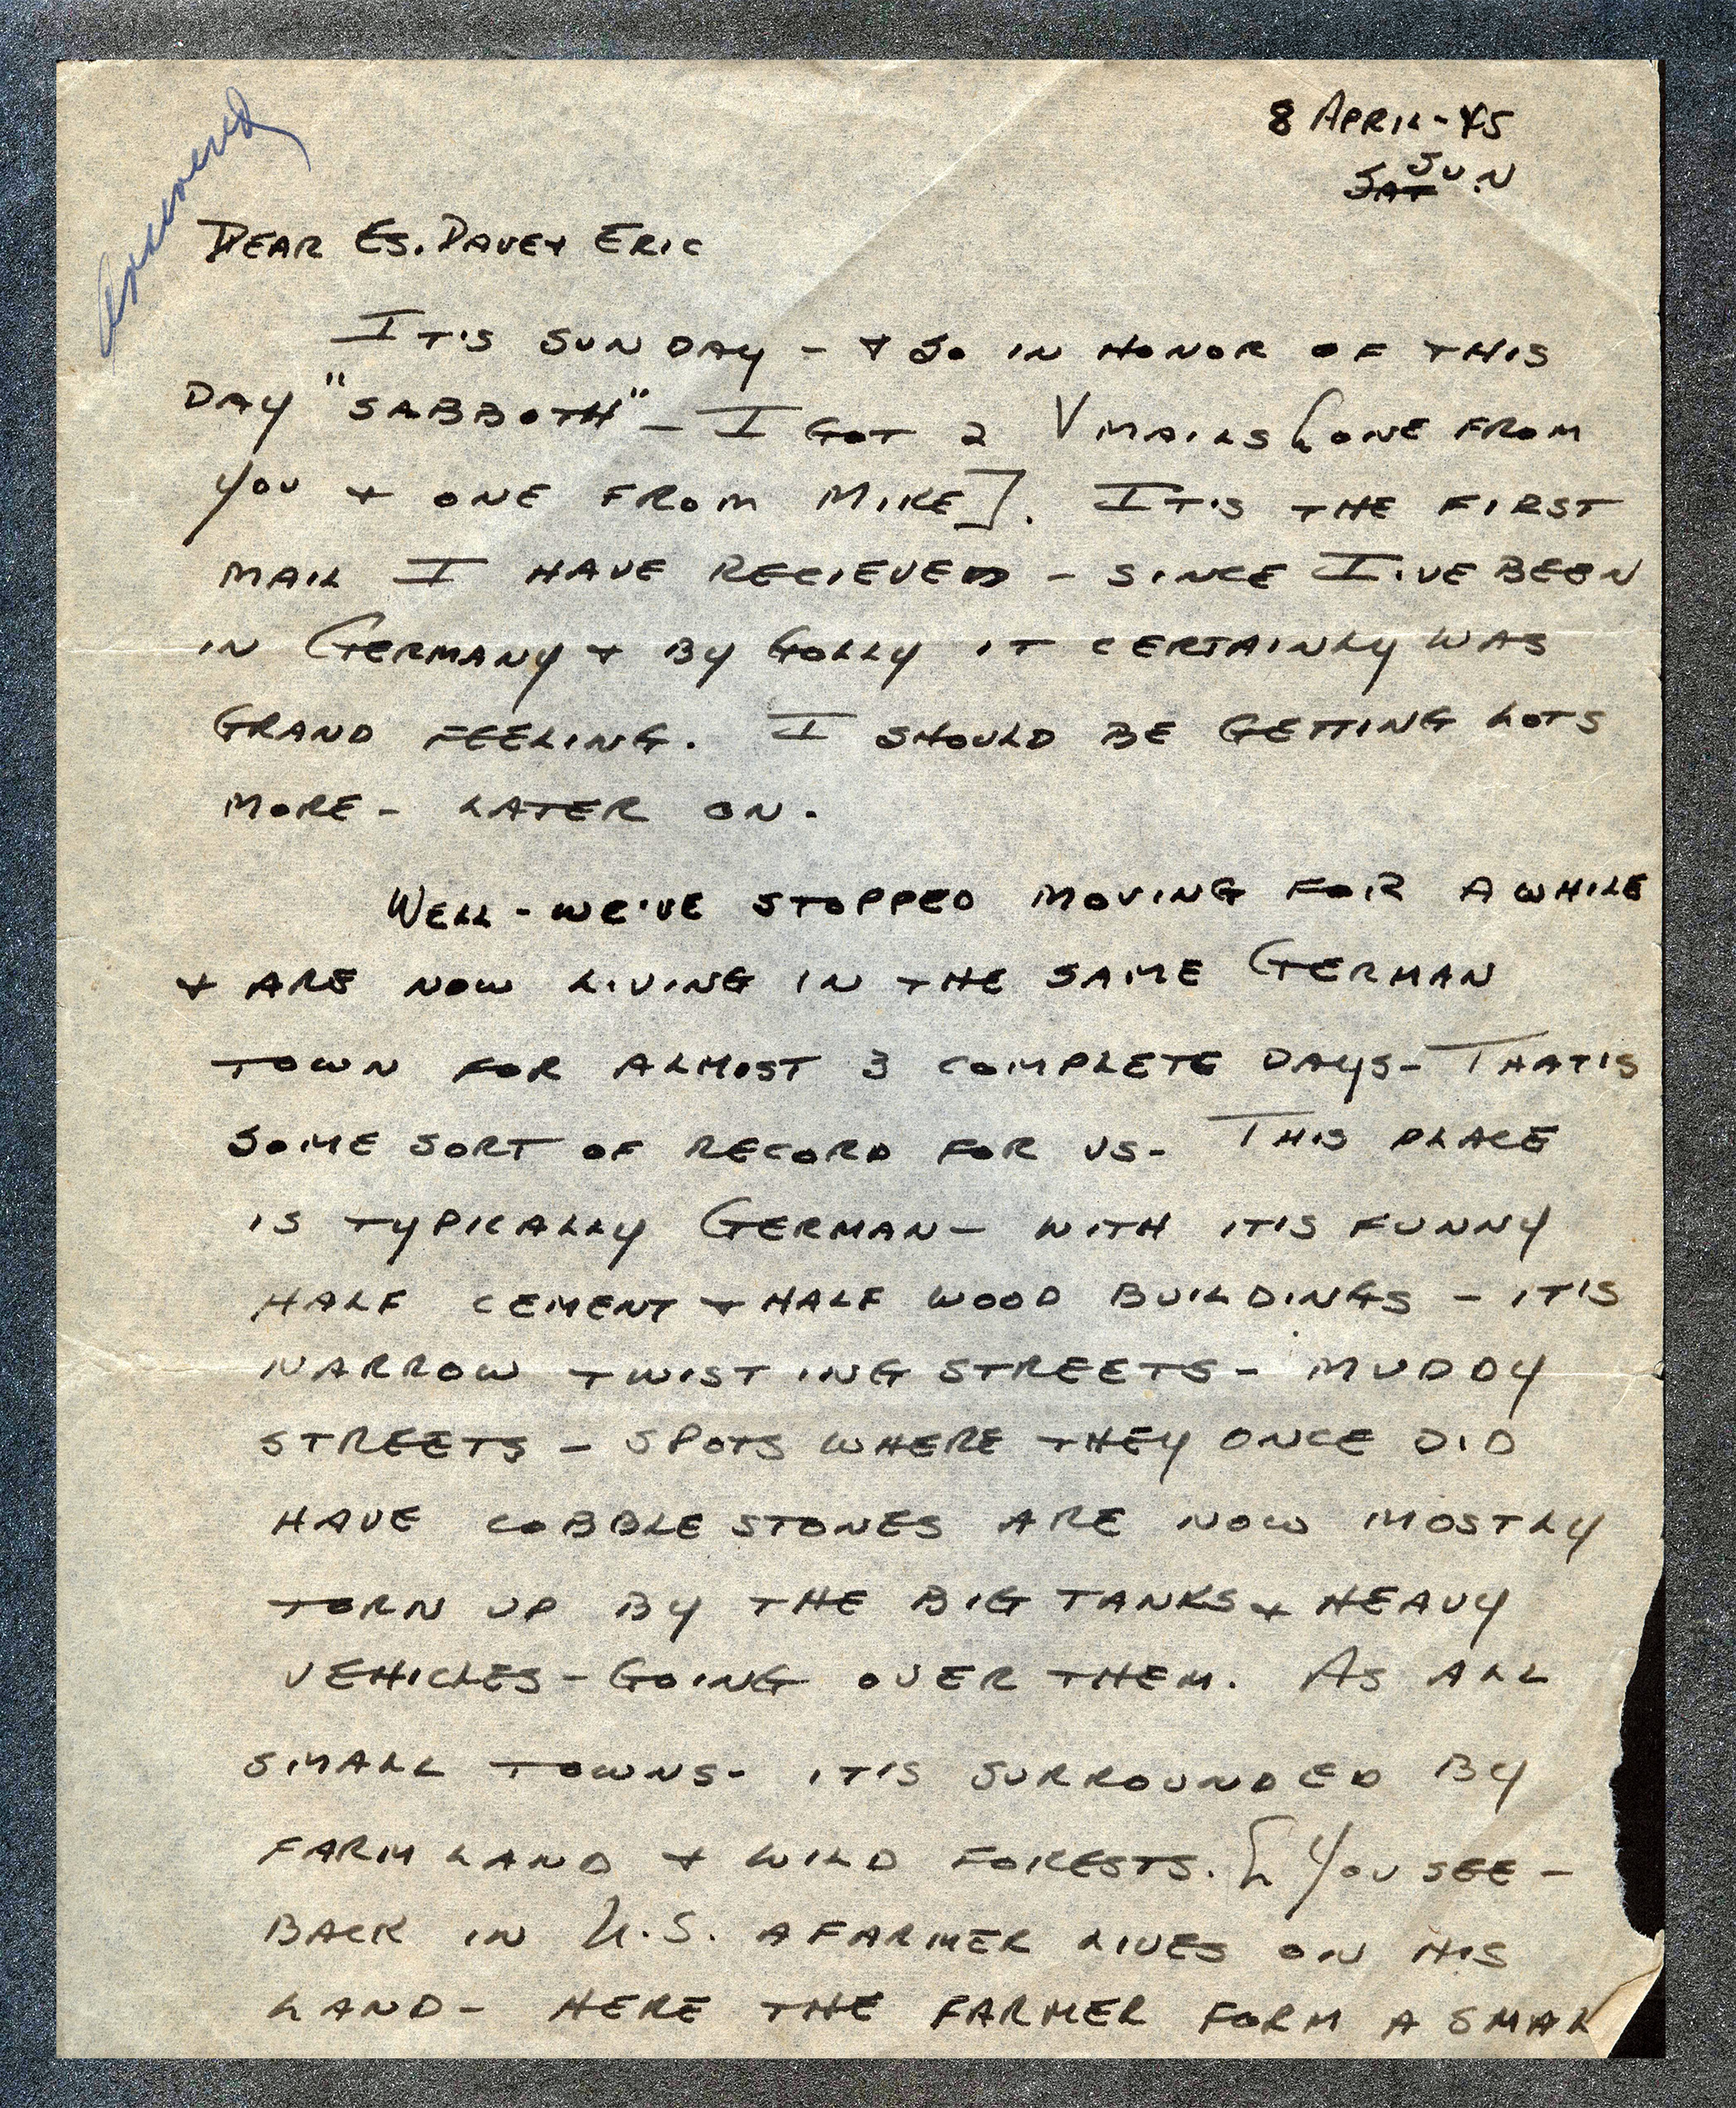 Answered
8 APRIL-45
SAT SUN
DEAR ES. DAVE + ERIC
IT'S SUNDAY - + SO IN HONOR OF THIS
DAY "SABBOTH" - I GOT 2 V MAILS [ONE FROM
YOU + ONE FROM MIKE]. IT'S THE FIRST
MAIL I HAVE RECIEVED - SINCE I'VE BEEN
IN GERMANY + BY GOLLY IT CERTAINLY WAS
GRAND FEELING. I SHOULD BE GETTING LOTS
MORE - LATER ON.
WELL - WE'VE STOPPED MOVING FOR A WHILE
+ ARE NOW LIVING IN THE SAME GERMAN
TOWN FOR ALMOST 3 COMPLETE DAYS - THAT'S
SOME SORT OF RECORD FOR US - THIS PLACE
IS TYPICALLY GERMAN - WITH IT'S FUNNY
HALF CEMENT + HALF WOOD BUILDINGS - IT'S
NARROW TWISTING STREETS - MUDDY
STREETS - SPOTS WHERE THEY ONCE DID
HAVE COBBLE STONES ARE NOW MOSTLY
TORN UP BY THE BIG TANKS + HEAVY
VEHICLES - GOING OVER THEM. AS ALL
SMALL TOWNS - IT'S SURROUNDED BY
FARM LAND + WILD FORESTS. [YOU SEE -
BACK IN U.S. A FARMER LIVES ON HIS
LAND - HERE THE FARMER FORM A SMAL